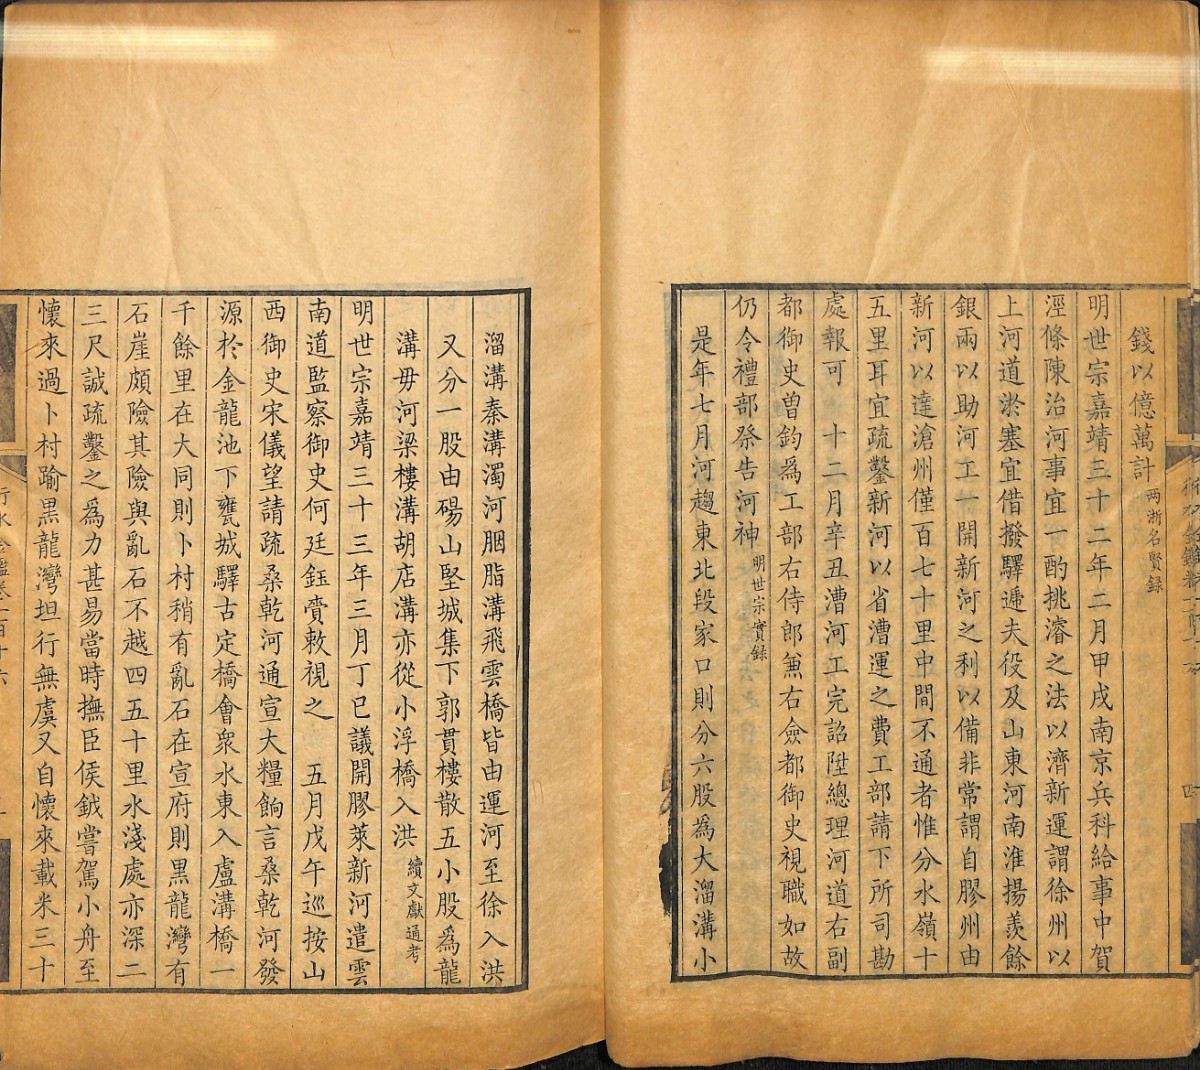 錢以億萬計 两浙名賢録
明世宗嘉靖三十二年二月甲戌南京兵科給事中賀
涇條陳治河事宜一酌挑濬之法以濟新運謂徐州以
上河道淤塞宜借撥驛遞夫役及山東河南淮揚羨餘
銀兩以助河工一開新河之利以備非常謂自膠州由
新河以達滄州僅百七十里中間不通者惟分水嶺十
五里耳宜疏鑿新河以省漕運之費工部請下所司勘
處報可 十二月辛丑漕河工完詔陞總理河道右副
都御史曽鈞為工部右侍郎兼右僉都御史視職如故
仍令禮部祭告河神 明世宗實録
是年七月河趨東北段家口則分六股為大溜溝小
溜溝秦溝濁河胭脂溝飛雲橋皆由運河至徐入洪
又分一股由碭山堅城集下郭貫樓散五小股為龍
溝毋河梁樓溝胡店溝亦從小浮橋入洪 續文獻通考
明世宗嘉靖三十三年三月丁巳議開膠萊新河遣雲
南道監察御史何廷鈺賫敕視之 五月戊午巡按山
西御史宋儀望請疏桑乾河通宣大糧餉言桑乾河發
源於金龍池下甕城驛古定橋會衆水東入盧溝橋一
千餘里在大同則卜村稍有亂石在宣府則黑龍灣有
石崖頗險其險與亂石不越四五十里水淺處亦深二
三尺誠疏鑿之為力甚易當時撫臣侯鉞嘗駕小舟至
懷來過卜村踰黑龍灣坦行無虞又自懷來載米三十